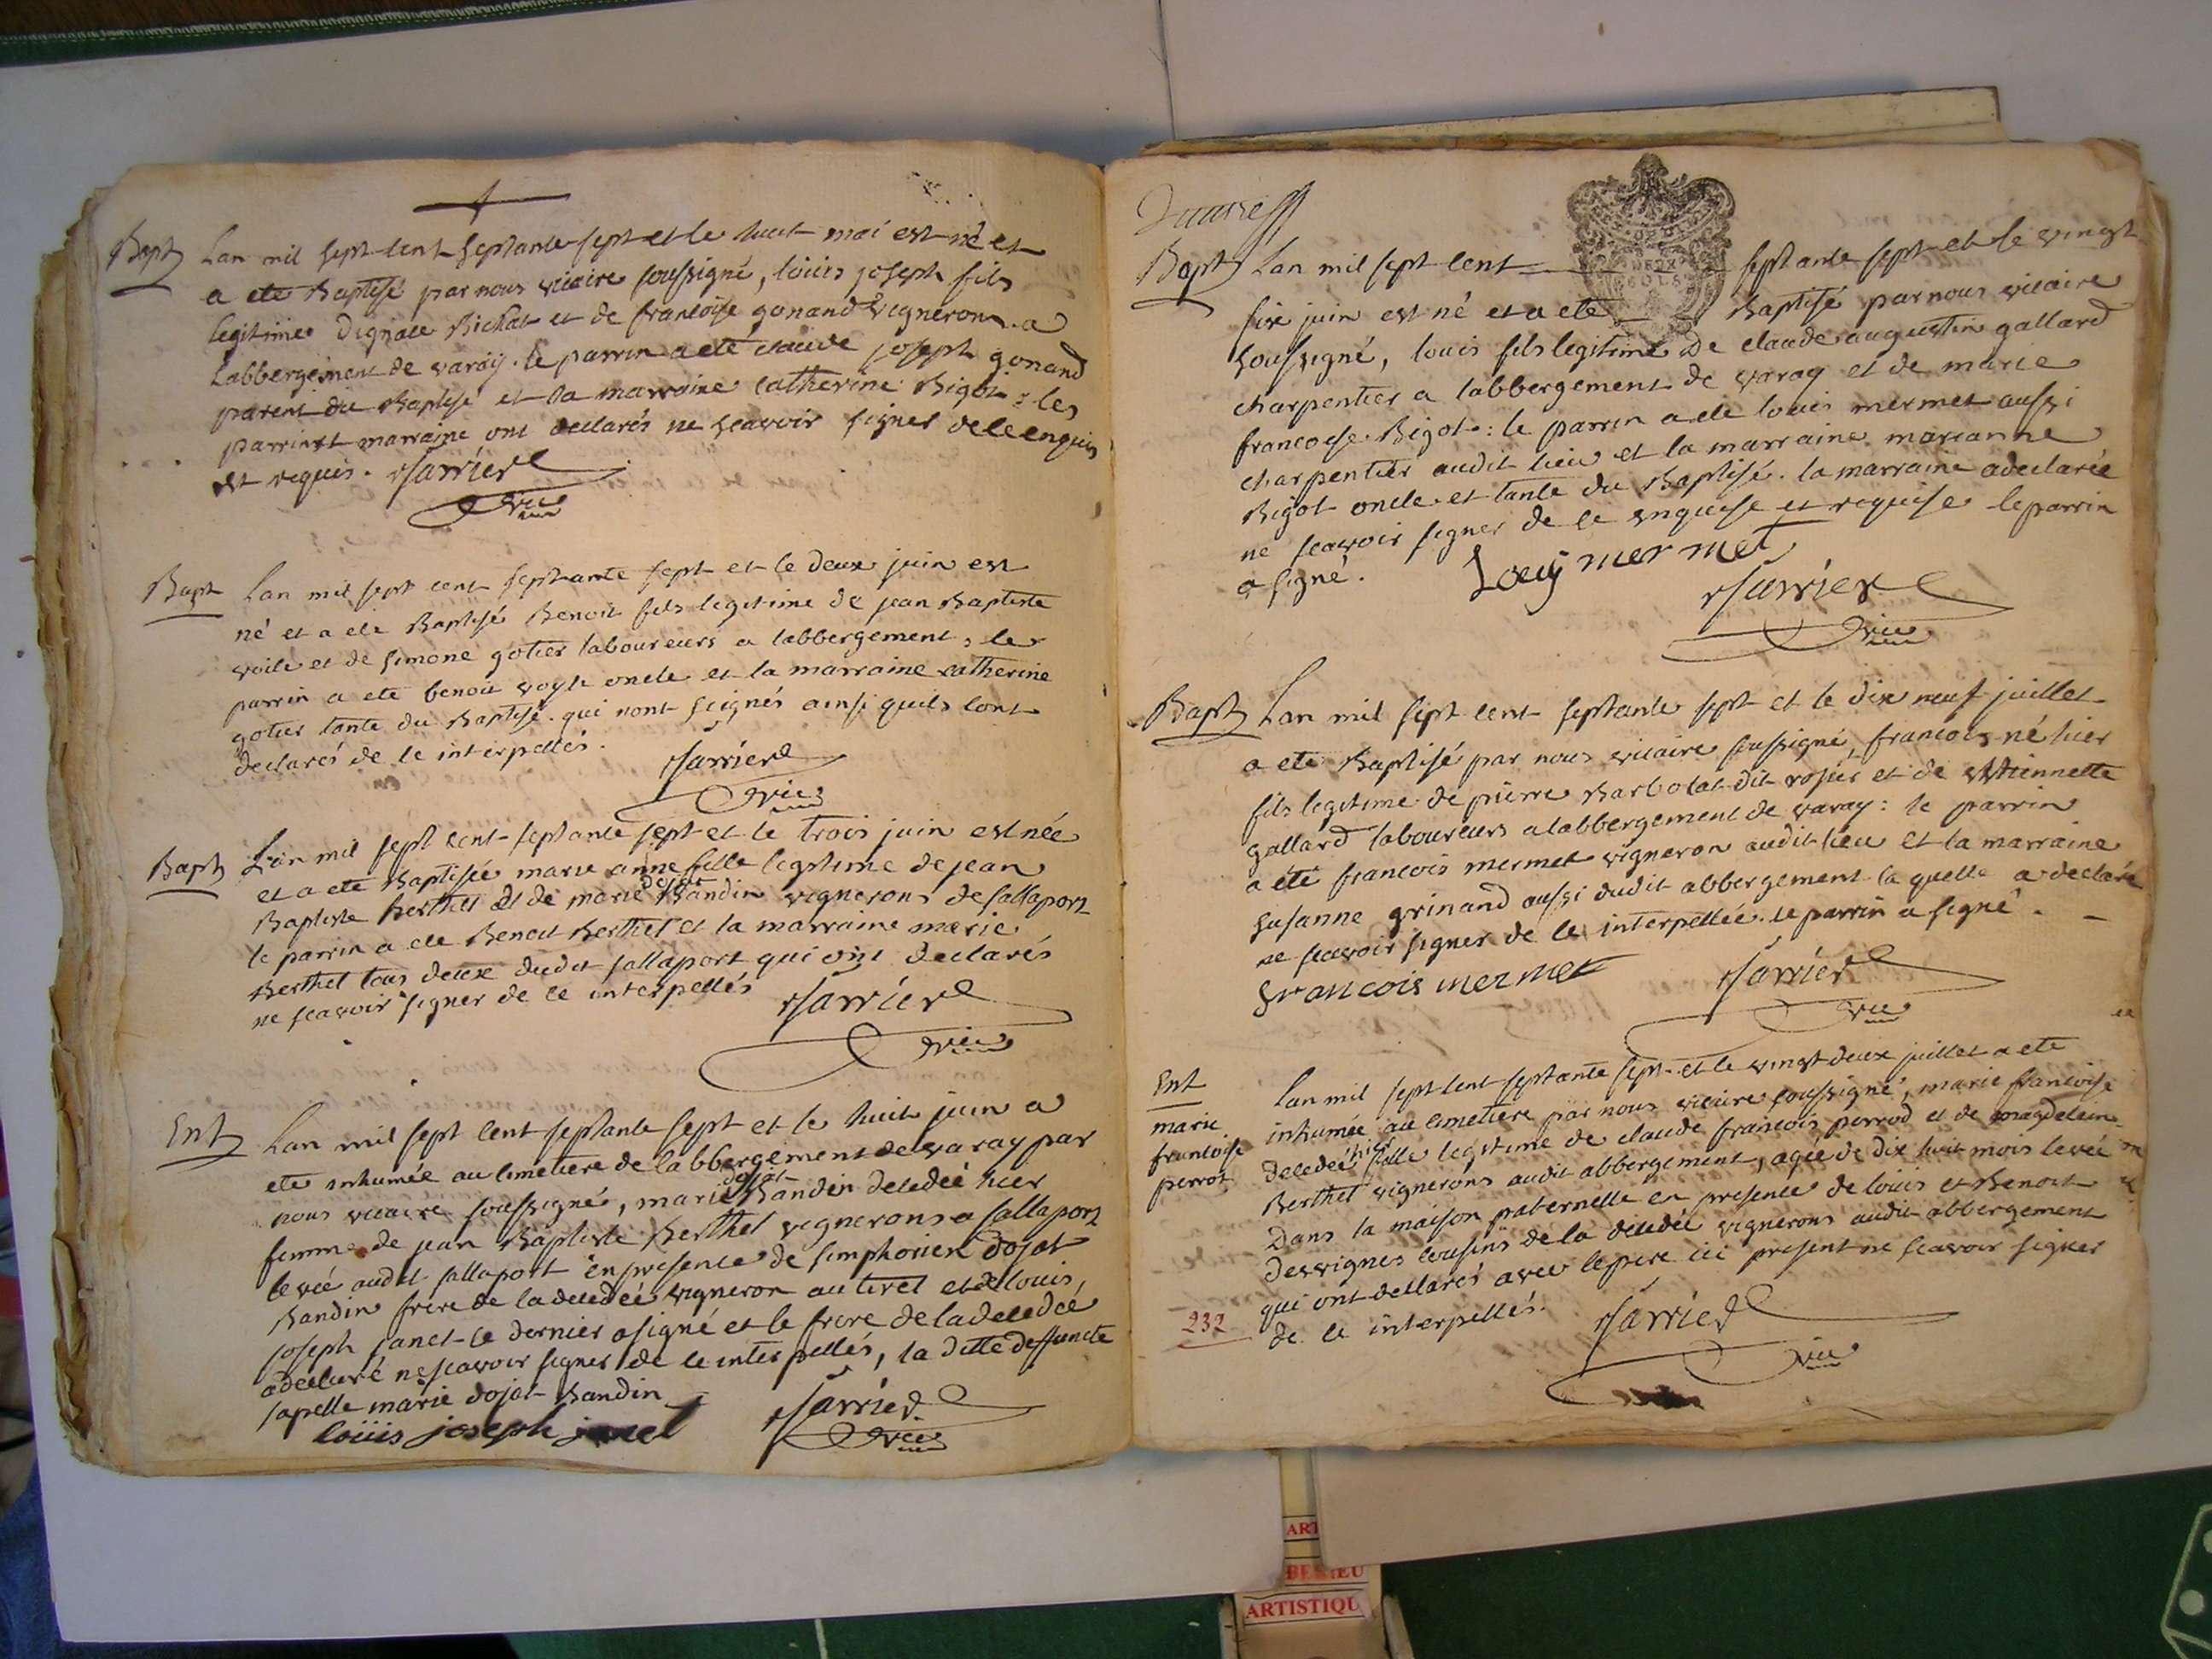 Bapt Lan mil sept cent septante sept et le huit mai est né et
a ete Baptisé par nous vicaire soussigné, loüis joseph fils
legitime dignace Bichat et de francoise gonand vignerons a
Labbergement de varay. le parrin a ete claude joseph gonand
parent du Baptisé et la marraine catherine Bigot : les
parrin et marraine ont declarés ne scavoir signer de ce enquis
et requis. Sarrier
vic
Bapt Lan mil sept cent septante sept et le deux juin est
né et a ete Baptisé Benoit fils legitime de jean Baptiste
voile et de simone gotier laboureurs a labbergement, le
parrin a ete benoit voyle oncle et la marraine catherine
gotier tante du Baptisé. qui nont signés ainsi quils lont
declarés de ce interpellés.
Sarrier
vic
Bapt Lan mil sept cent septante sept et le trois juin est née
et a ete Baptisée marie anne fille legitime de jean
dojat
Baptiste Berthet et de marie Bandin vignerons de sallaport
le parrin a ete Benoit Berthet et la marraine marie
Berthet tous deux dudit sallaport qui ont declarés
ne scavoir signer de ce interpellés
Sarrier
vic
Ent Lan mil sept cent septante sept et le huit juin a
ete inhumée au cimetiere de labbergement de varay par
dojat
nous vicaire soussigné, marie Bandin decedeé hier
femme de jean Baptiste Berthet vignerons a sallaport
leveé audit sallaport en presence de simphorien dojat
Bandin frere de la decedeé vigneron au tiret et de louis
joseph janet le dernier a signé et le frere de la decedeé
a declaré ne scavoir signer de ce interpellés, la ditte deffuncte
sapelle marie dojat Bandin
loüis joseph janet
Sarrier
vic
DEUX
SOLS
Bapt Lan mil sept cent septante sept et le vingt
six juin est né et a ete Baptisé par nous vicaire
soussigné, louis fils legitime de claude augustin gallard
charpentier a labbergement de varay et de marie
francoise Bigot : le parrin a ete louis mermet aussi
charpentier audit lieu et la marraine marianne
Bigot oncle et tante du Baptisé. la marraine a declarée
ne scavoir signer de ce enquise et requise le parrin
a signé.
Louy mermet
Sarrier
vic
Bapt Lan mil sept cent septante sept et le dix neuf juillet
a ete Baptisé par nous vicaire soussigné, francois né hier
fils legitime de pierre Barbolat dit rosier et de ettiennette
gallard laboureurs a labbergement de varay : le parrin
a été francois mermet vigneron audit lieu et la marraine
susanne grinand aussi dudit abbergement la quelle a declaré
ne scavoir signer de ce interpellée. le parrin a signé.
francois mermet
Sarrier
vic
Ent
marie
francoise
perrot
Lan mil sept cent septante sept et le vingt deux juillet a ete
inhumée au cimetiere par nous vicaire soussigné, marie francoise
hier
decedeé fille legitime de claude francois perrod et de magdeleine
Berthet vignerons audit abbergement, ageé de dix huit mois leveé
Dans la maison paternelle en presence de loüis et Benoit
desvignes cousins de la decedeé vignerons audit abbergement
qui ont declarés avec le pere ici present ne scavoir signer
de ce interpellés.
Sarrier
vic
232
ART
ARTISTIQU